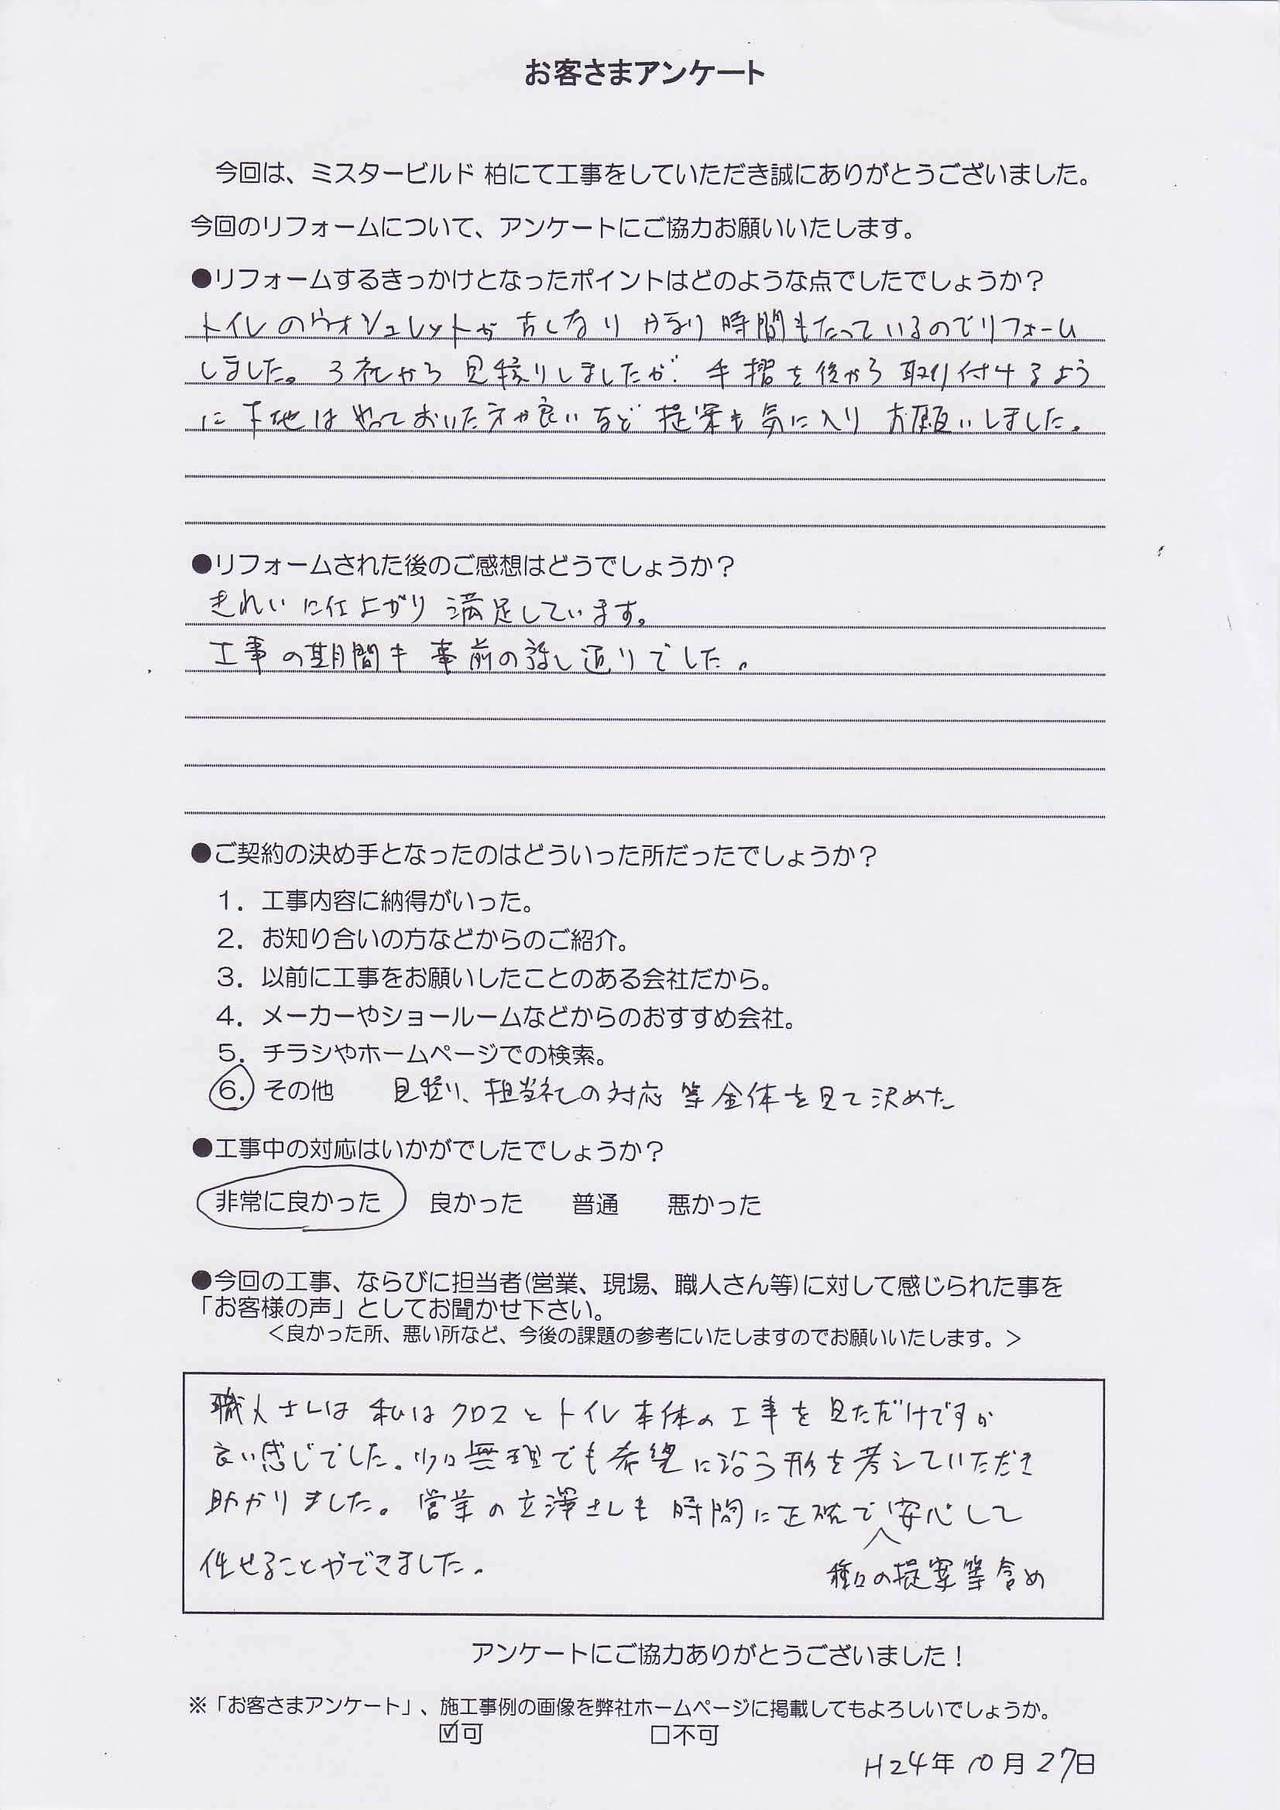 お客さまアンケート
今回は、ミスタービルド 柏にて工事をしていただき誠にありがとうございました。
今回のリフォームについて、アンケートにご協力お願いいたします。
●リフォームするきっかけとなったポイントはどのような点でしたでしょうか？
トイレのウォシュレットが古くなり かなり時間もたっているのでリフォーム
しました。3社から見積りしましたが、手摺を後から取り付けるよう
に下地はやっておいた方が良いなど提案も気に入りお願いしました。
●リフォームされた後のご感想はどうでしょうか？
きれいに仕上がり満足しています。
工事の期間も事前の話し通りでした。
●ご契約の決め手となったのはどういった所だったでしょうか？
1．工事内容に納得がいった。
2．お知り合いの方などからのご紹介。
3．以前に工事をお願いしたことのある会社だから。
4．メーカーやショールームなどからのおすすめ会社。
5．チラシやホームページでの検索。
6．その他 見積り、担当社しの対応等全体を見て決めた
●工事中の対応はいかがでしたでしょうか？
非常に良かった 良かった 普通 悪かった
●今回の工事、ならびに担当者(営業、現場、職人さん等)に対して感じられた事を
「お客様の声」としてお聞かせ下さい。
＜良かった所、悪い所など、今後の課題の参考にいたしますのでお願いいたします。＞
職人さんは私はクロスとトイレ本体の工事を見ただけですが
良い感じでした。少々無理でも希望に沿う形を考えていただき
助かりました。営業の立澤さんも時間に正確で安心して
種々の提案等含め
任せることができました。
アンケートにご協力ありがとうございました！
※「お客さまアンケート」、施工事例の画像を弊社ホームページに掲載してもよろしいでしょうか。
☑可 □不可
H24年10月27日